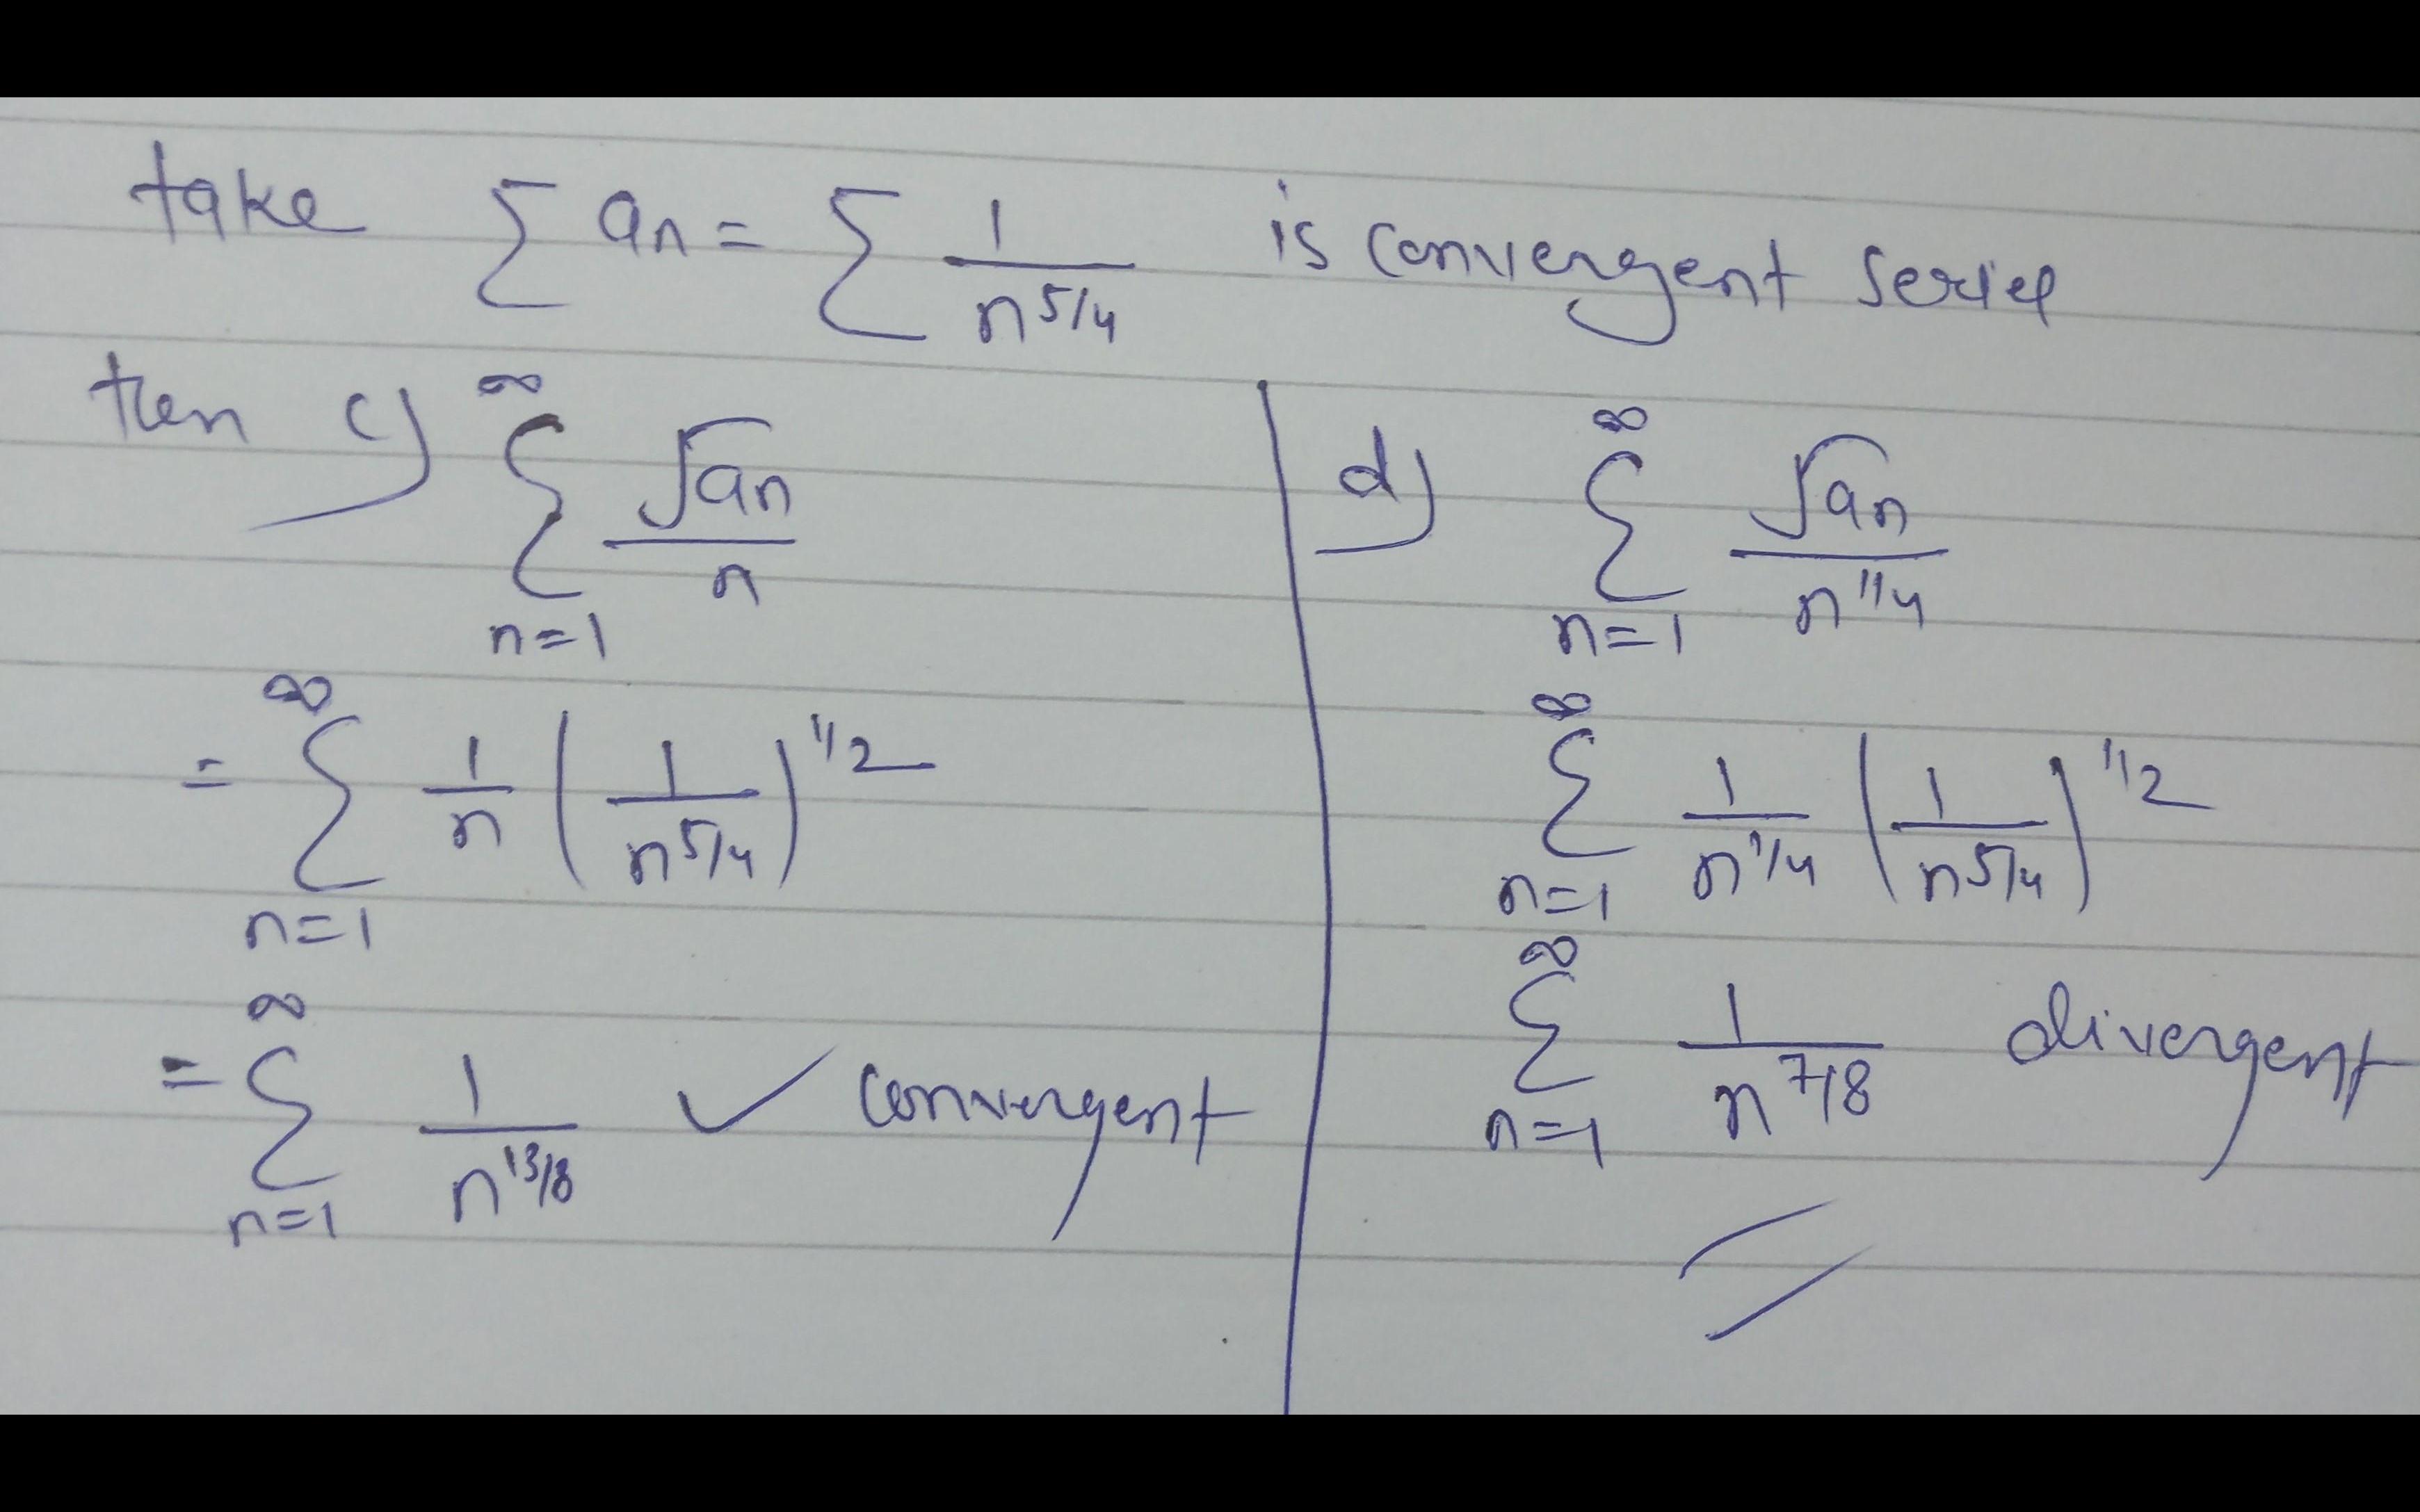 take ∑ an = ∑ 1/n^5/4 is convergent series
then c) ∞∑n=1 √an/n
= ∞∑n=1 1/n (1/n^5/4)^1/2
= ∞∑n=1 1/n^13/8 ✓ convergent
d) ∞∑n=1 √an/n^1/4
∞∑n=1 1/n^1/4 (1/n^5/4)^1/2
∞∑n=1 1/n^7/8 divergent